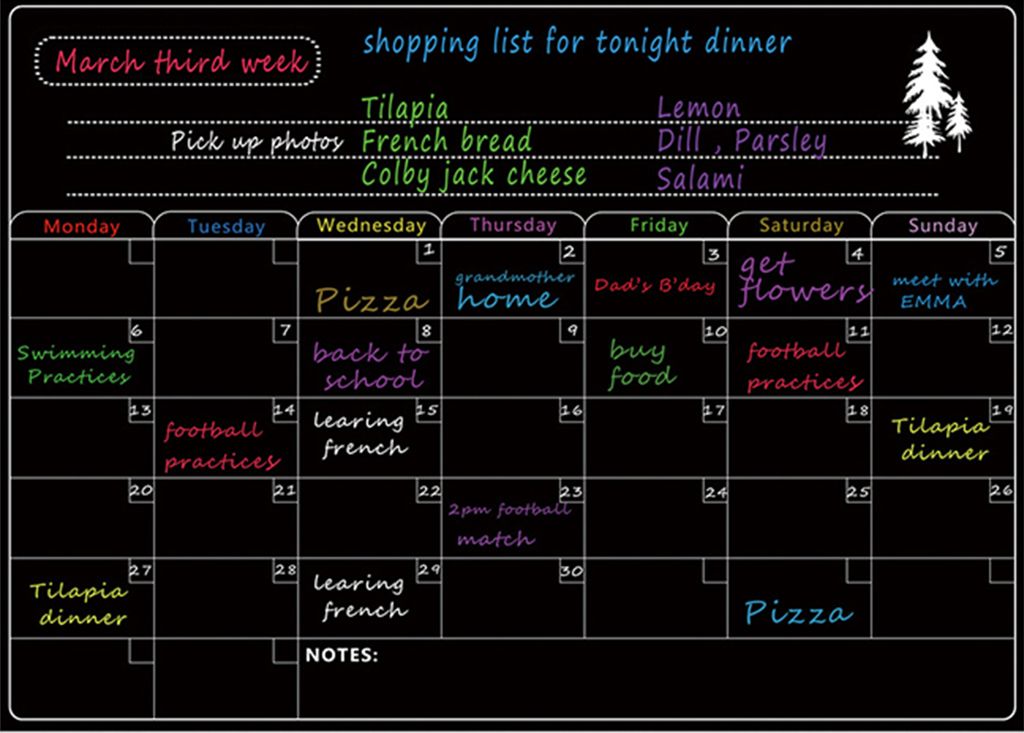 March third week
shopping list for tonight dinner
Tilapia Lemon
Pick up photos French bread Dill , Parsley
Colby jack cheese Salami
Monday Tuesday Wednesday Thursday Friday Saturday Sunday
1 2 3 4 5
Pizza
grandmother
home
Dad's B'day
get
flowers
meet with
EMMA
6 7 8 9 10 11 12
Swimming
Practices
back to
school
buy
food
football
practices
13 14 15 16 17 18 19
football
practices
learing
french
Tilapia
dinner
20 21 22 23 24 25 26
2pm football
match
27 28 29 30
Tilapia
dinner
learing
french
Pizza
NOTES: